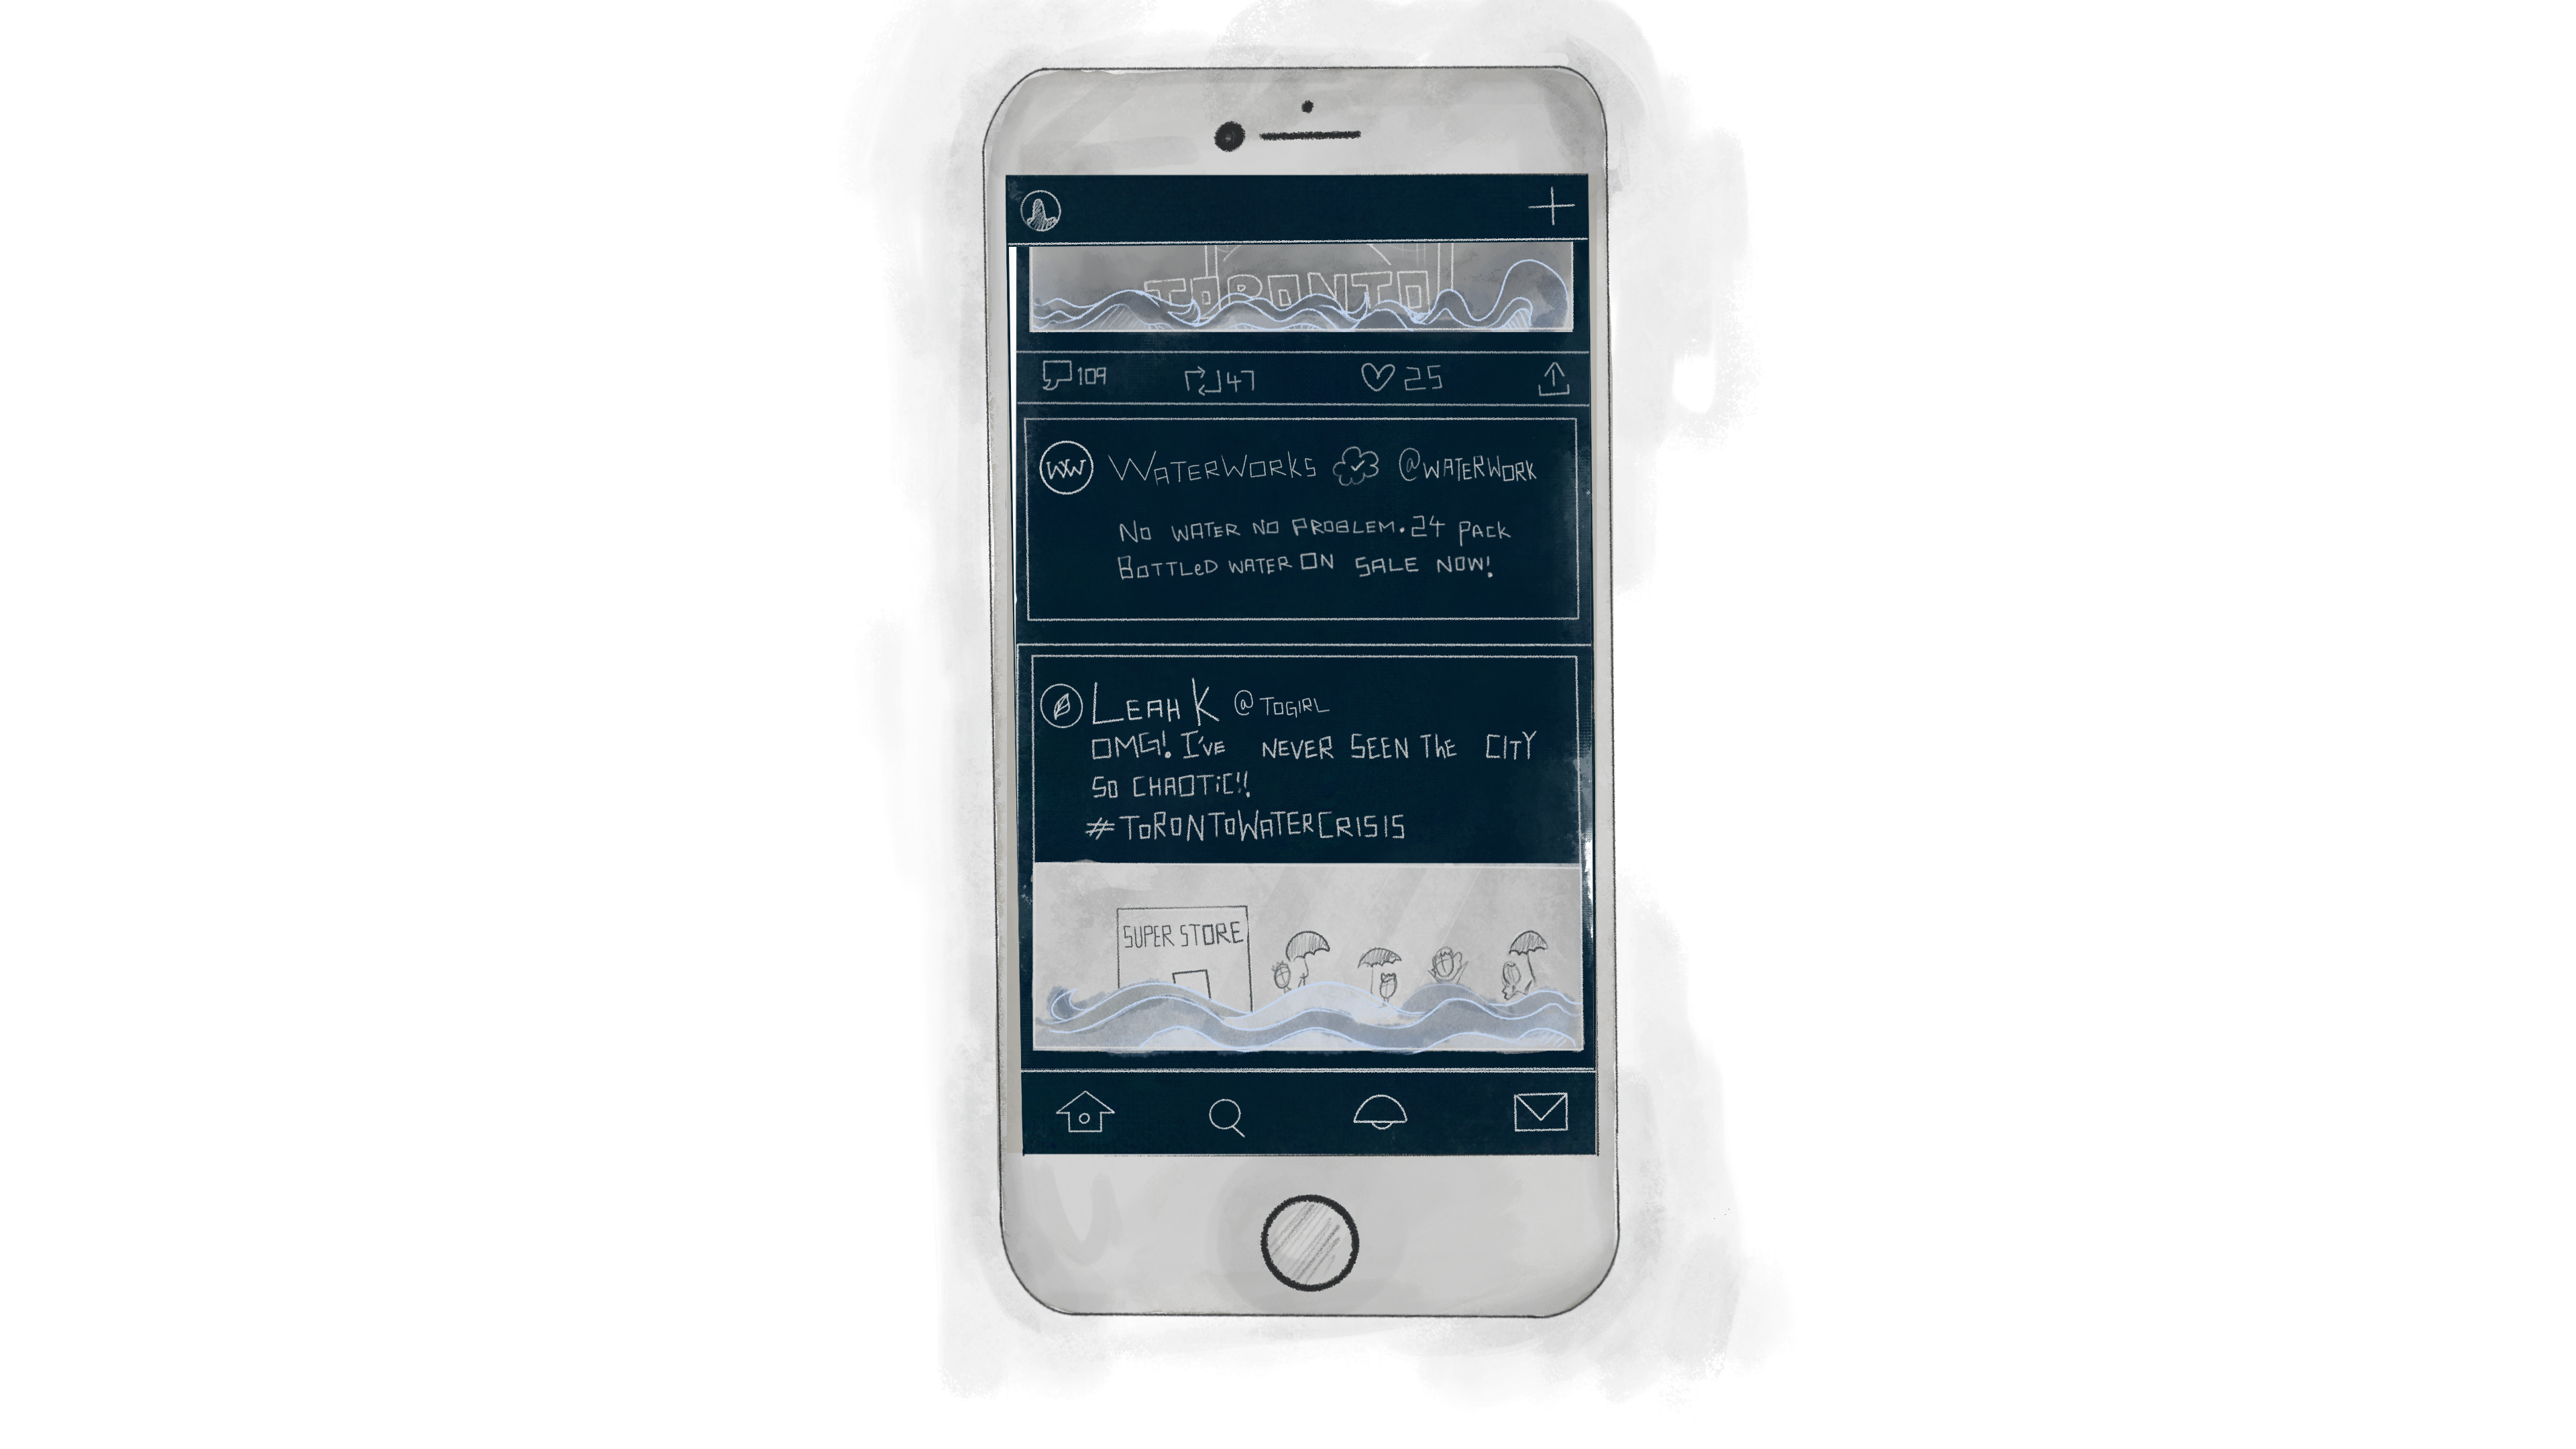 TORONTO
109 47 25
WW WATERWORKS @WATERWORK
NO WATER NO PROBLEM. 24 PACK
BOTTLeD WATER ON SALE NOW!
LEAH K @TOGIRL
OMG! I'VE NEVER SEEN ThE CITY
SO CHAOTiC!!
#ToRONToWATERCRISIS
SUPER STORE